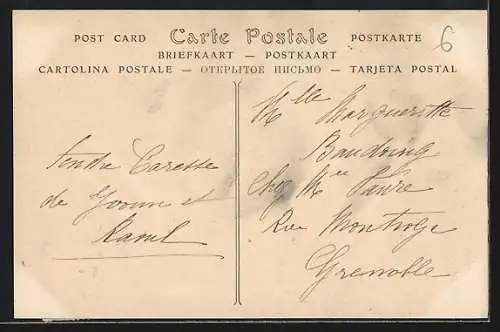 POST CARD Carte Postale POSTKARTE
BRIEFKAART — POSTKAART
CARTOLINA POSTALE — ОТКРЫТОЕ ПИСЬМО — TARJETA POSTAL
6
Tendre Caresse
de Yvonne et
Raoul
Mlle Marguerite
Chez Mee Favre
Rue Montorge
Grenoble